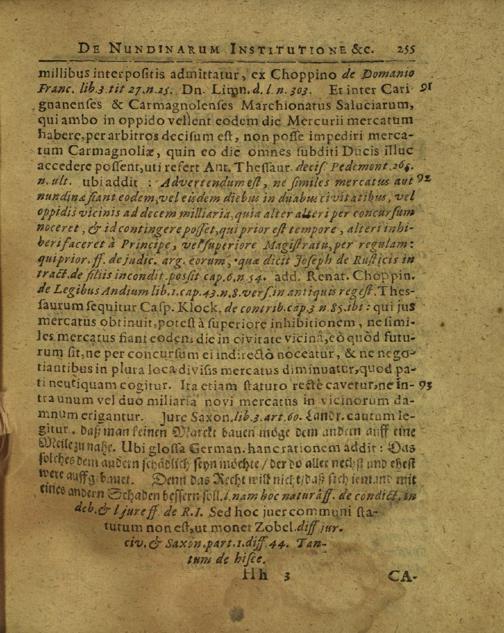 DE NUNDINARUM INSTITUTIONE &c. 255
millibus interpositis admittatur, ex Choppino de Domanio
Franc. lib. 3. tit 27. n. 25. Dn. Limn. d. l. n. 303. Et inter Cari 91
gnanenses & Carmagnolenses Marchionatus Saluciarum,
qui ambo in oppido vellent eodem die Mercurii mercatum
habere, per arbitros decisum est, non posse impediri merca-
tum Carmagnoliæ, quin eo die omnes subditi Ducis illuc
accedere possent, uti refert Ant. Thessaur. decis. Pedemont. 265.
n. ult. ubi addit : Advertendum est, ne similes mercatus aut 92
nundinæ fiant eodem, vel eisdem diebus in duabus civitatibus, vel
oppidis vicinis ad decem milliaria, quia alter alteri per concursum
noceret, & id contingere posset, qui prior est tempore, alteri inhi-
beri faceret à Principe, vel superiore Magistratu, per regulam:
qui prior. ff. de judic. arg. eorum, quæ dicit Joseph de Rusticis in
tract. de filiis incondit. posit cap. 6. n. 54. add. Renat. Choppin.
de Legibus Andium lib. 1. cap. 43. n. 8. vers. in antiquis regest. Thes-
saurum sequitur Casp. Klock. de contrib. cap. 3 n. 85. ibi: qui jus
mercatus obtinuit, potest à superiore inhibitionem, ne simi-
les mercatus fiant eodem die in civitate vicinâ, eò quòd futu-
rum sit, ne per concursum ei indirectò noceatur, & ne nego-
tiantibus in plura loca divisis mercatus diminuatur, quod pa-
ti neutiquam cogitur. Ita etiam statuto rectè cavetur, ne in- 93
tra unum vel duo miliaria novi mercatus in vicinorum da-
mnum erigantur. Jure Saxon. lib. 3. art. 60. Landr. cautum le-
gitur. daß man keinen Marckt bauen möge dem andern auff eine
Meile zu nahe. Ubi glossa German. hanc rationem addit: Das
solches dem andern schädlich seyn möchte / der do aller nechst und ehest
were auffgebauet. Denn das Recht wil nicht / daß sich jemand mit
eines andern Schaden bessern soll. l. nam hoc natur. ff. de condict. in
deb. & l jure ff. de R. I. Sed hoc juer communi sta-
tutum non est, ut monet Zobel. diff jur.
civ. & Saxon. part. 1. diff. 44. Tan-
tum de hisce.
Hh 3 CA-